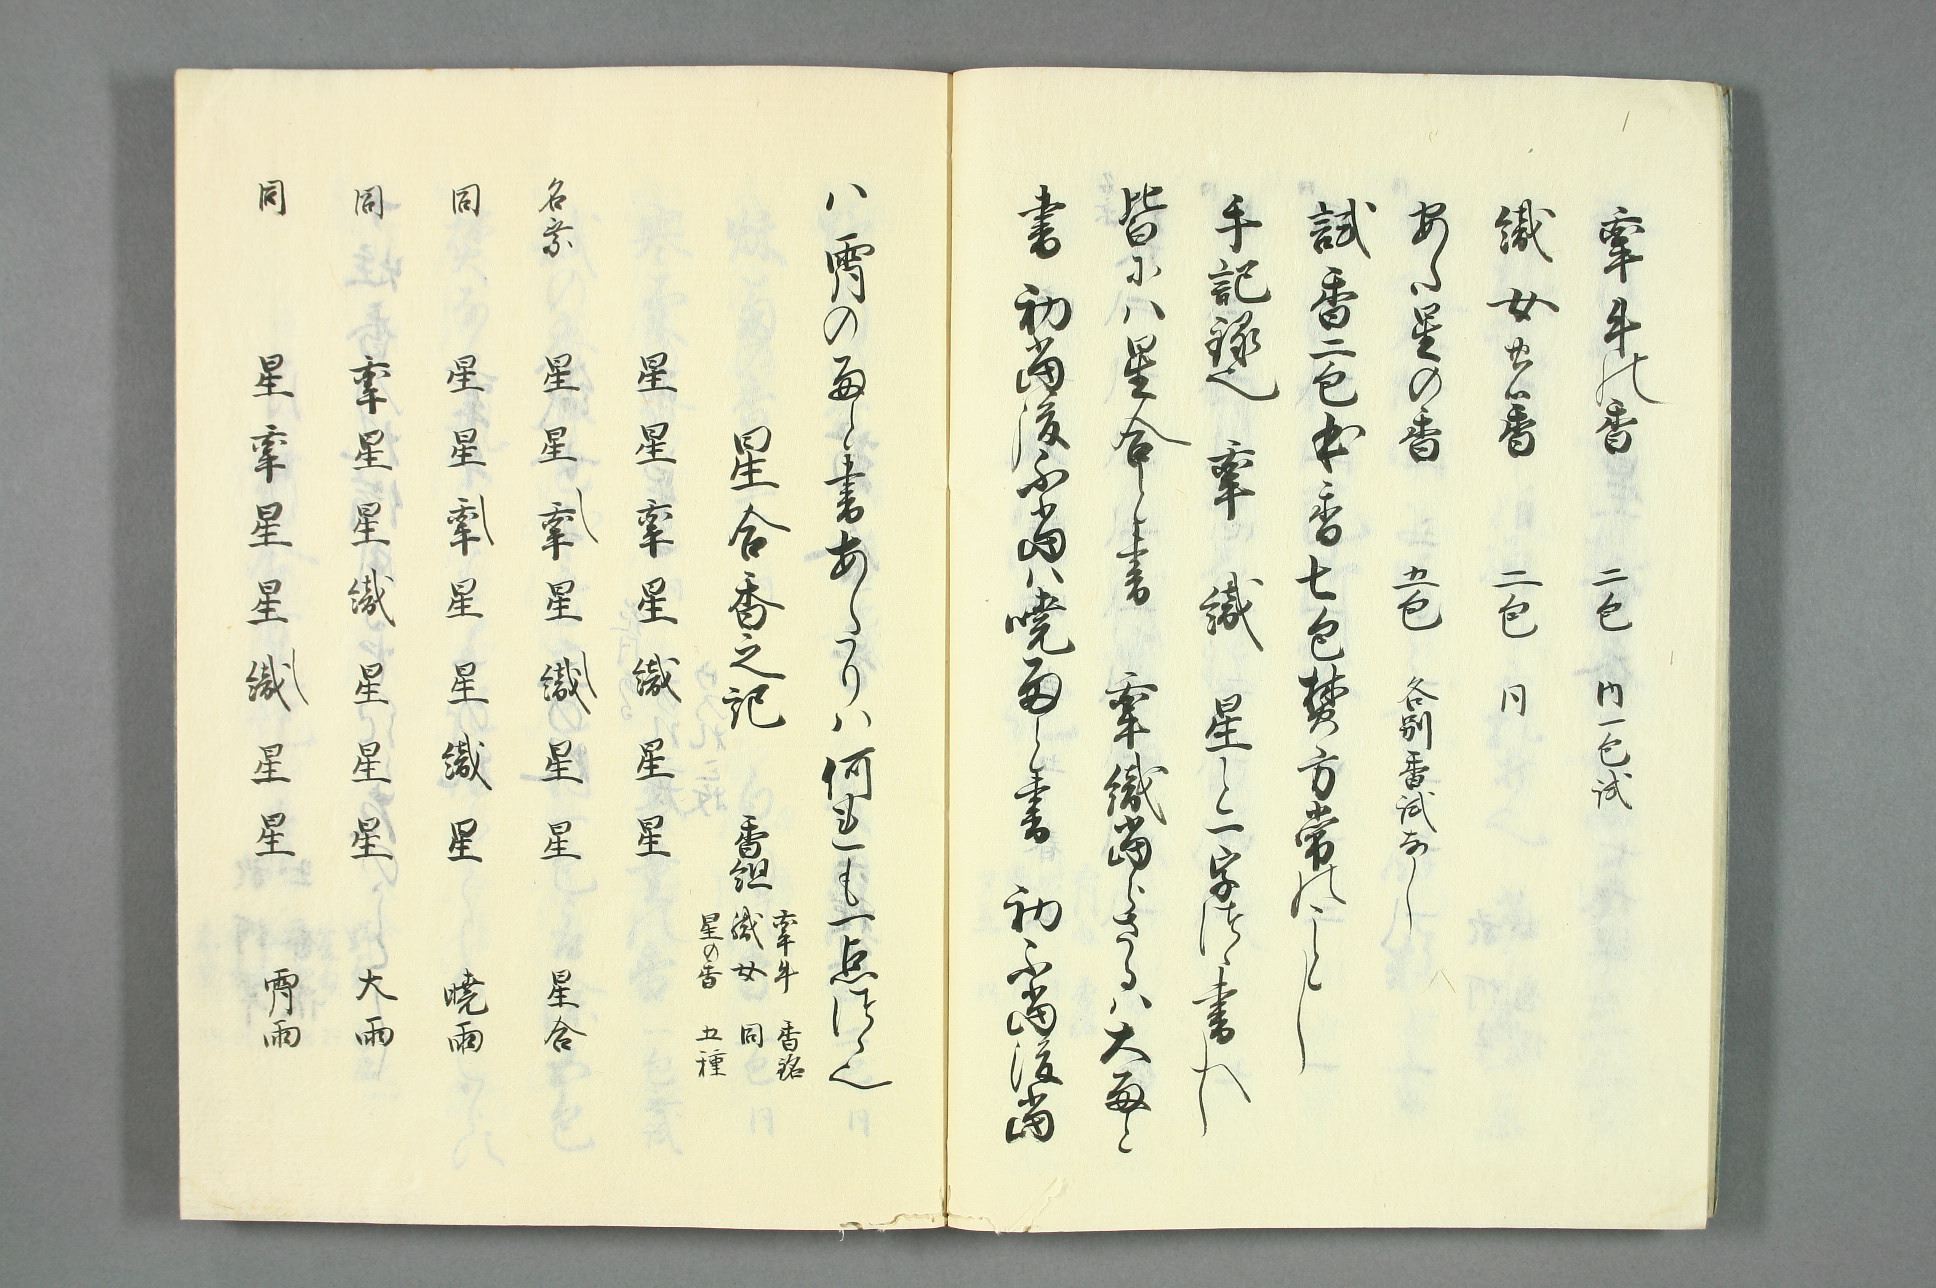 牽牛の香 二包 内一包試
織女の香 二包 同
あた星の香 五包 各別香試なし
試香二包本香七包焚方常のことし
手記録也 牽 織 星と一字つゝ書へし
皆中ハ星合と書 牽織当らさるハ大雨と
書 初当後不当ハ暁雨と書 初不当後当
ハ宵の雨と書あたりハ何れも一点つゝ也
星合香之記 香組
牽牛 香銘
織女 同
星の香 五種
星 星 牽 星 織 星 星
名乗 星 星 牽 星 織 星 星 星合
同 星 星 牽 星 星 織 星 暁雨
同 牽 星 星 織 星 星 星 大雨
同 星 牽 星 星 織 星 星 宵雨